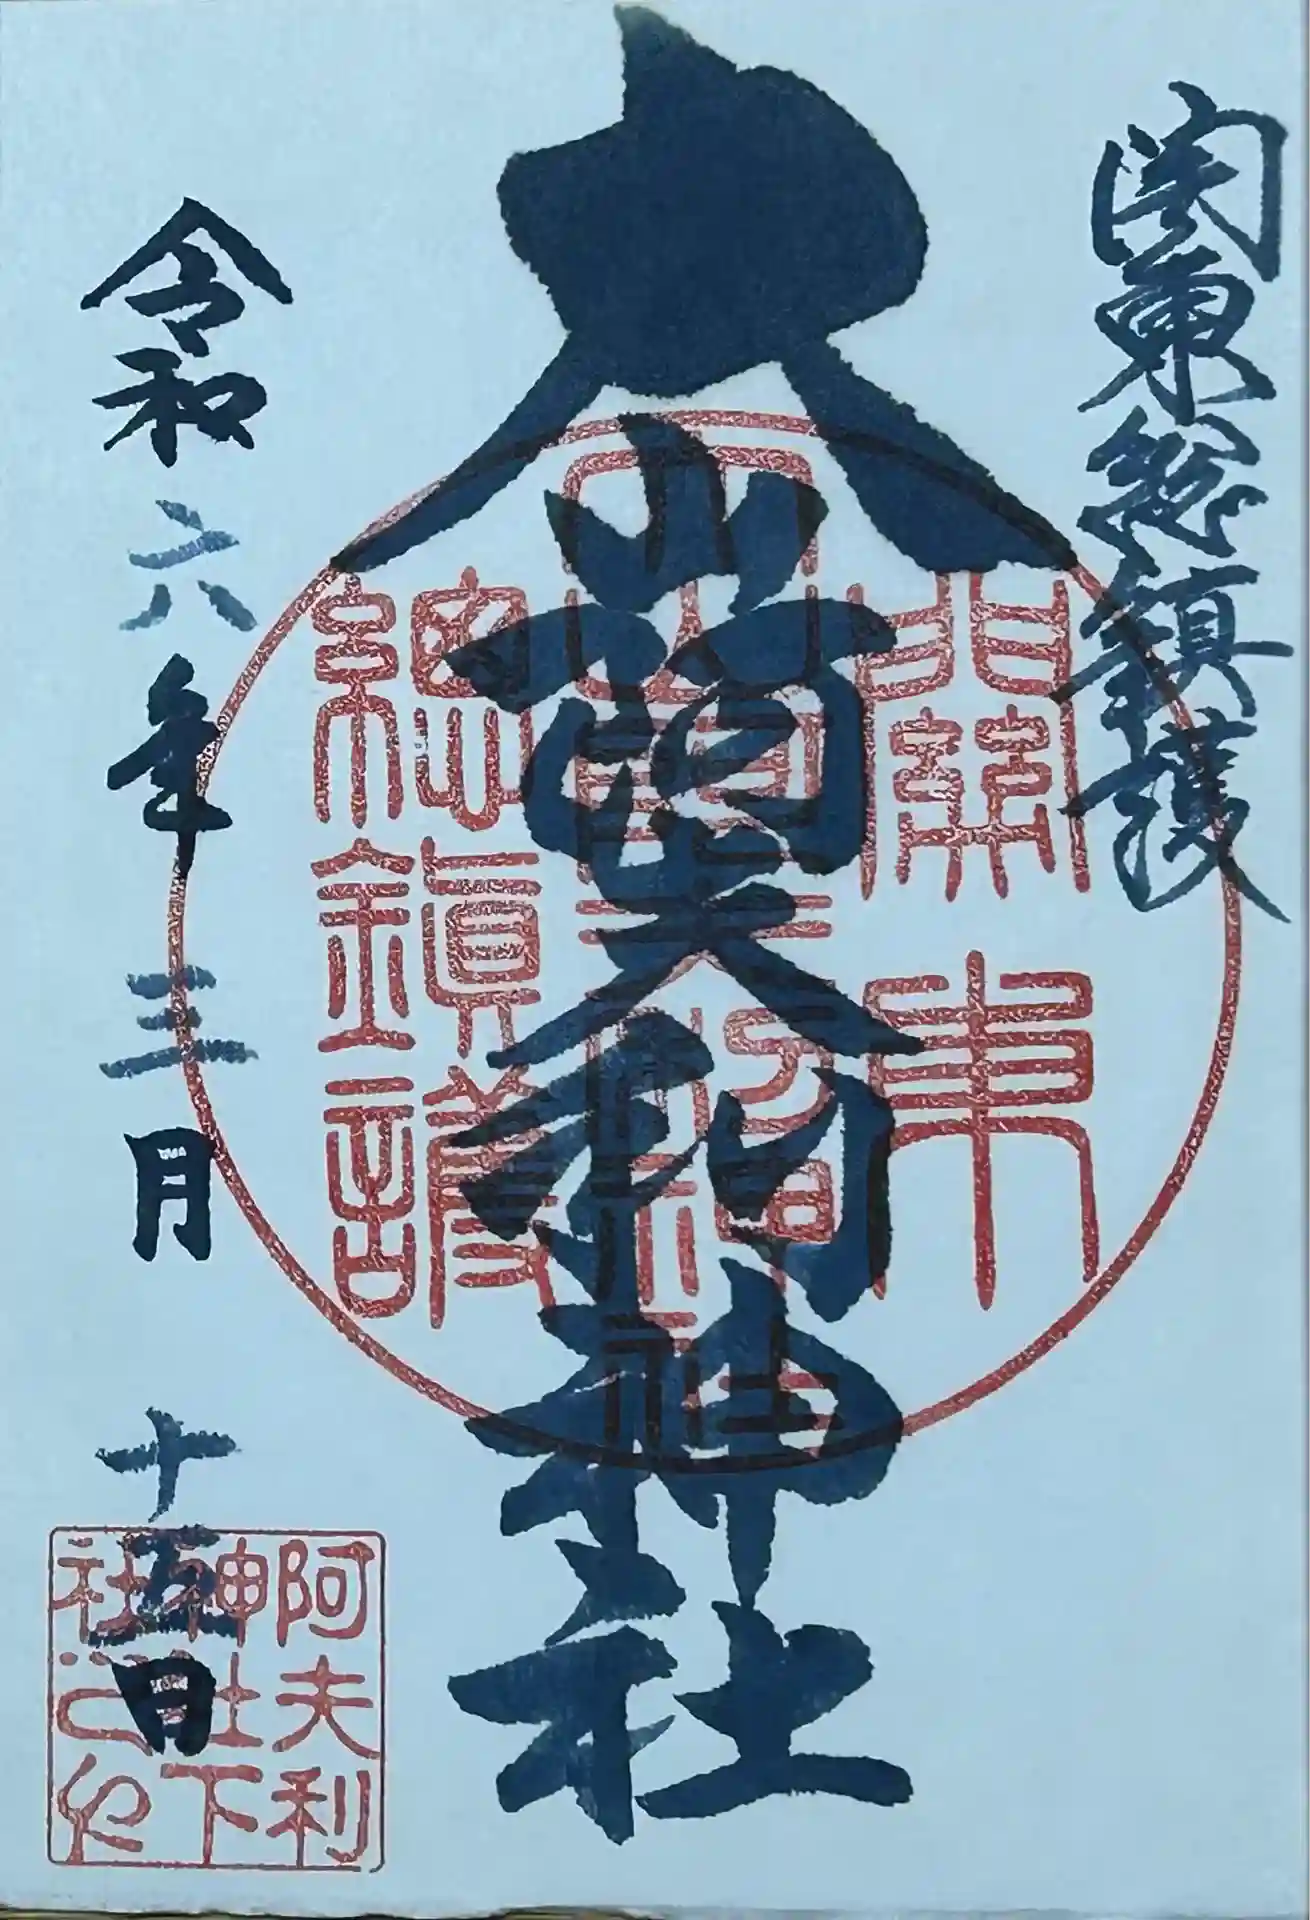 関東總鎮護
大山阿夫利神社
令和六年三月十五日
關東
大山阿夫利神社
總鎮護
阿夫利
神社下
社之印